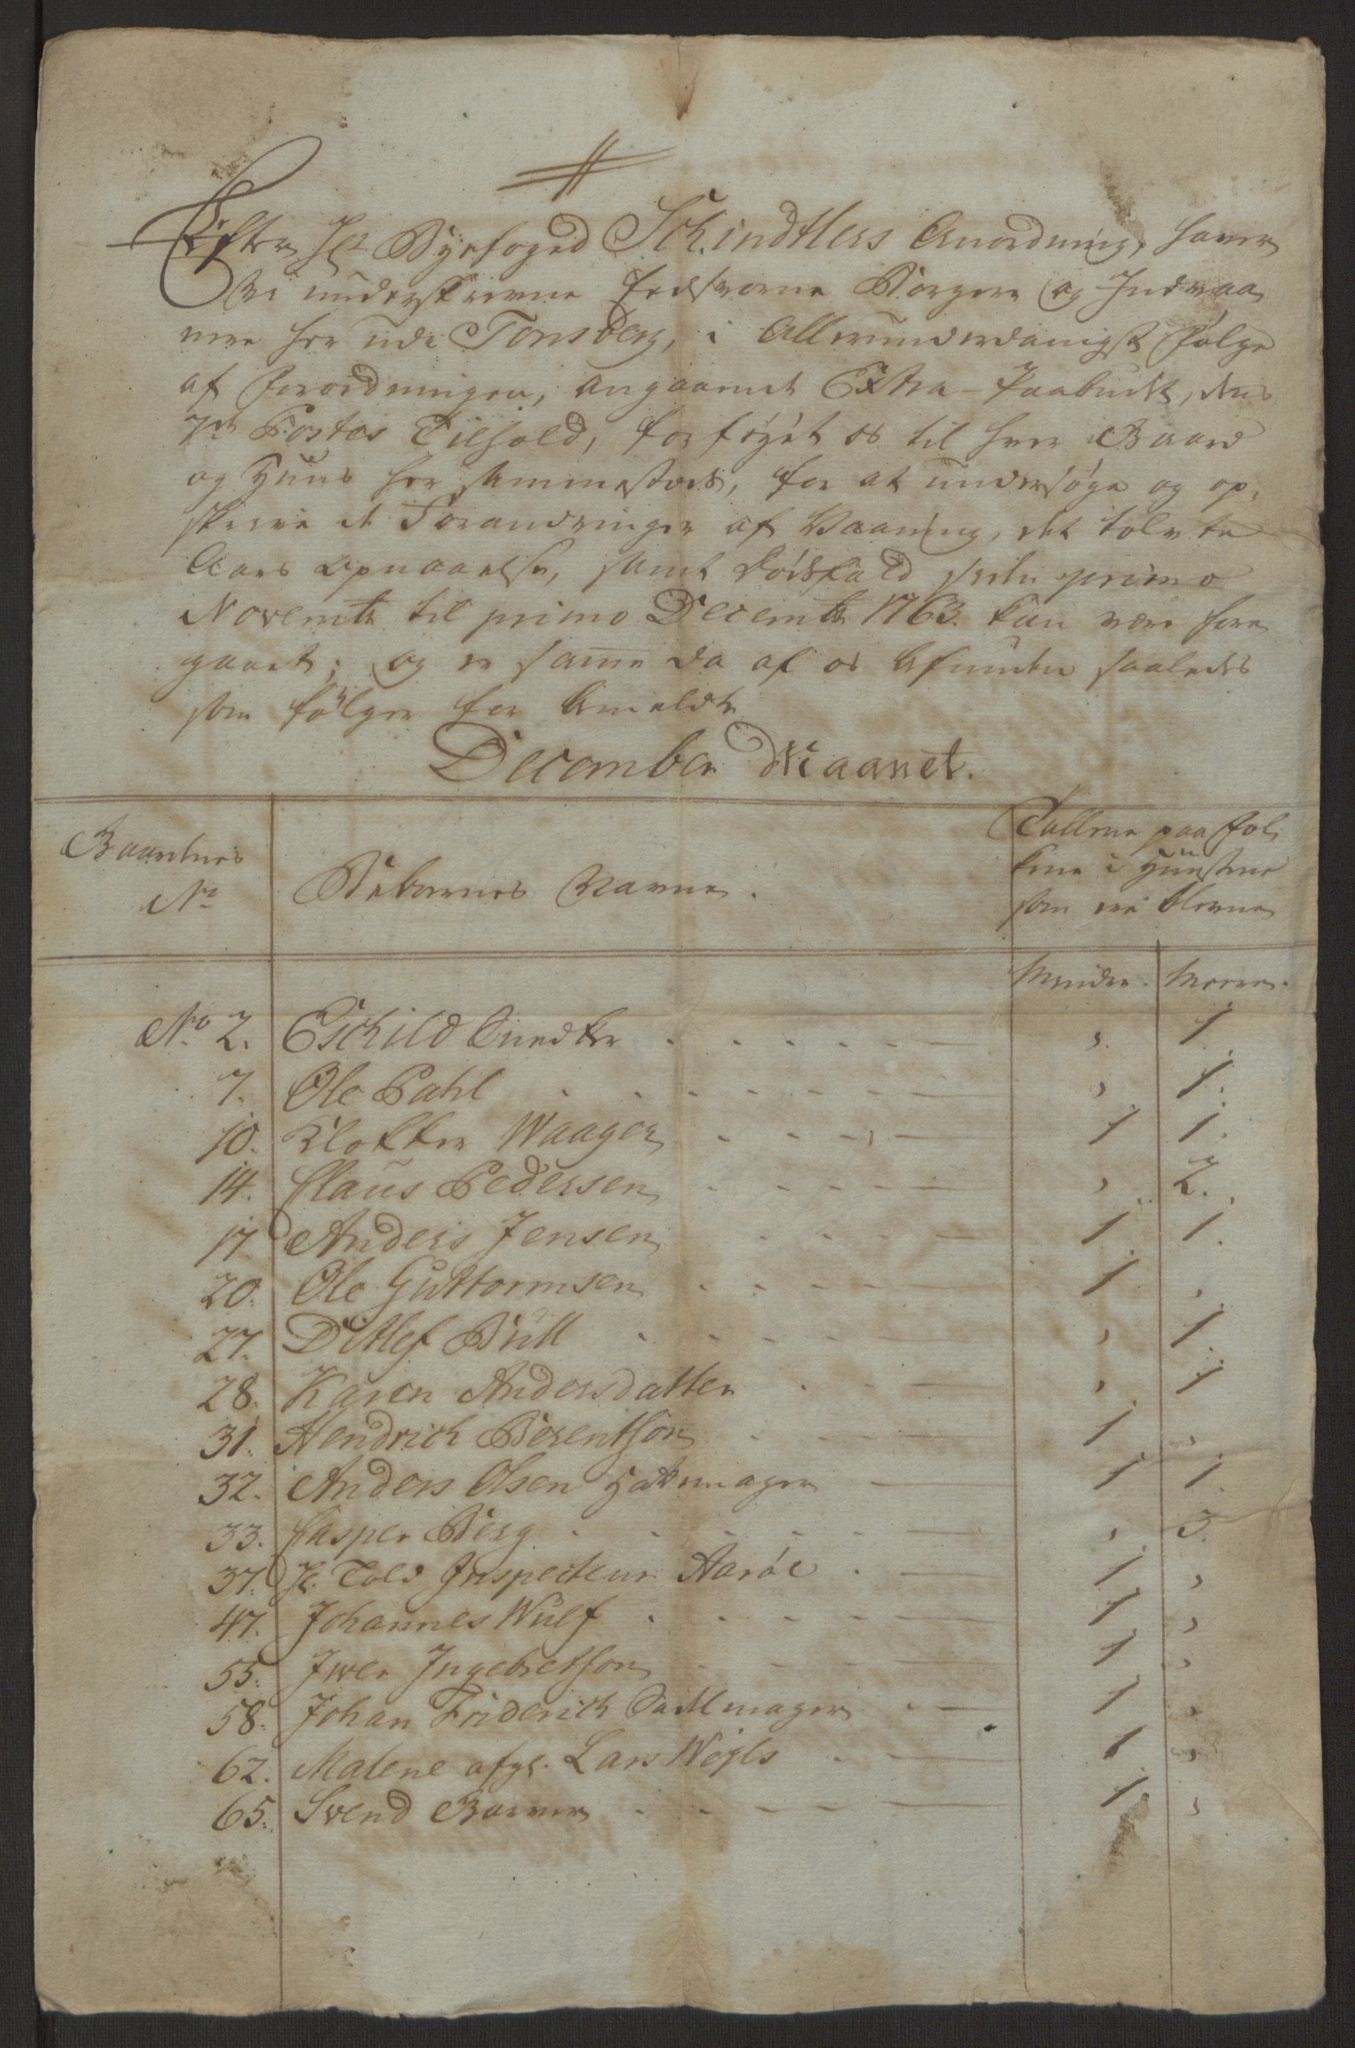 Efter Hr Byefoged Schindtlers Anordning, haver
Vi underskrevne Eedsvorne Borgere og Indvaa
nere her udi Tonsberg, i Allerunderdanigst følge
af forordningen, angaaende Extra-Paabudet, dens
7de Postes Tilhold, forføyet os til hver Gaard
og Huus her sammestæds, for at undersøge og op-
skrive de Forandringer af Vaaning, det tolvte
Aars opnaaelse, samt Dødsfald siden primo
Novembr til primo Decembr 1763. kan være fore
gaaet; og er samme da af os befunden saaledes
som følger for bemeldte
December Maanet.
Gaardenes
No
Beboernes Navne.
Tallene paa Fol
kene i Huusene
som ere blevne
Mindre. Meere.
No 2. Eschild Cundtze , 1.
7. Ole Pahl , 1.
10. Kloster Waager 1 1.
14. Claus Pedersen , 2.
17 Anders Jensen 1 1.
20. Ole Guttormsen 1 ,
27. Ditlef Bull , 1.
28. Karen Andersdatter , 1
31. Hendrich Berentsøn 1 ,
32. Anders Olsen Hattemager 1 1.
33. Casper Berg , 3.
37. Hr. Told Inspecteur Aarøe 1 ,
47. Johannes Wulf 1 ,
55. Iwer Ingebretson 1 ,
58. Johan Friderich Sadlmager 1 ,
62. Malene afgl. Lars Wøyls 1 ,
65. Svend Garver 1 ,